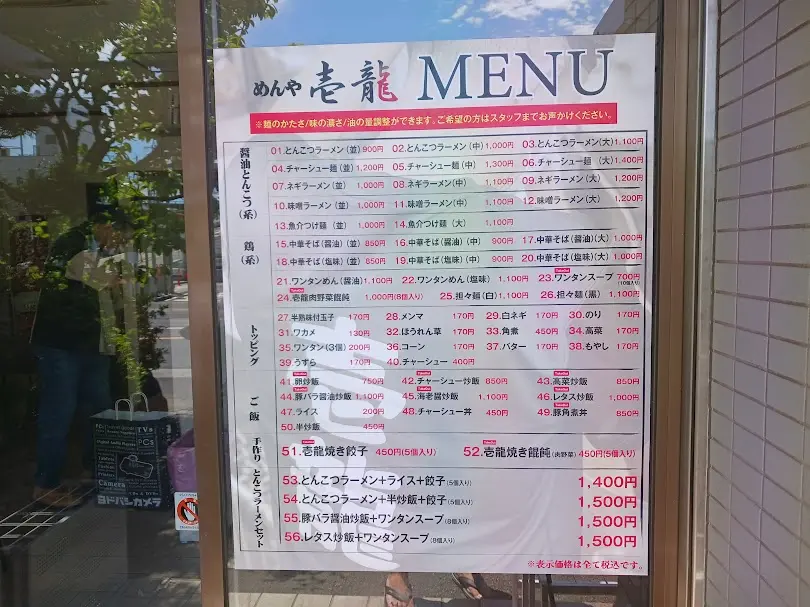 めんや 壱龍 MENU
※麺のかたさ/味の濃さ/油の量調整ができます。ご希望の方はスタッフまでお声かけください。
醤油とんこつ(系)
01.とんこつラーメン(並) 900円 02.とんこつラーメン(中) 1,000円 03.とんこつラーメン(大) 1,100円
04.チャーシュー麺(並) 1,200円 05.チャーシュー麺(中) 1,300円 06.チャーシュー麺(大) 1,400円
07.ネギラーメン(並) 1,000円 08.ネギラーメン(中) 1,100円 09.ネギラーメン(大) 1,200円
10.味噌ラーメン(並) 1,000円 11.味噌ラーメン(中) 1,100円 12.味噌ラーメン(大) 1,200円
13.魚介つけ麺(並) 1,000円 14.魚介つけ麺(大) 1,100円
鶏(系)
15.中華そば(醤油)(並) 850円 16.中華そば(醤油)(中) 900円 17.中華そば(醤油)(大) 1,000円
18.中華そば(塩味)(並) 850円 19.中華そば(塩味)(中) 900円 20.中華そば(塩味)(大) 1,000円
21.ワンタンめん(醤油) 1,100円 22.ワンタンめん(塩味) 1,100円 23.ワンタンスープ 700円(10個入り)
24.壱龍肉野菜餛飩 1,000円(8個入り) 25.担々麺(白) 1,100円 26.担々麺(黒) 1,100円
トッピング
27.半熟味付玉子 170円 28.メンマ 170円 29.白ネギ 170円 30.のり 170円
31.ワカメ 130円 32.ほうれん草 170円 33.角煮 450円 34.高菜 170円
35.ワンタン(3個) 200円 36.コーン 170円 37.バター 170円 38.もやし 170円
39.うずら 170円 40.チャーシュー 400円
ご飯
41.卵炒飯 750円 42.チャーシュー炒飯 850円 43.高菜炒飯 850円
44.豚バラ醤油炒飯 1,100円 45.海老醤炒飯 1,100円 46.レタス炒飯 1,000円
47.ライス 200円 48.チャーシュー丼 450円 49.豚角煮丼 850円
50.半炒飯 450円
手作り
51.壱龍焼き餃子 450円(5個入り) 52.壱龍焼き餛飩(肉野菜) 450円(5個入り)
とんこつラーメンセット
53.とんこつラーメン+ライス+餃子(5個入り) 1,400円
54.とんこつラーメン+半炒飯+餃子(5個入り) 1,500円
55.豚バラ醤油炒飯+ワンタンスープ(8個入り) 1,500円
56.レタス炒飯+ワンタンスープ(8個入り) 1,500円
※表示価格は全て税込です。
PCs
TVs
Camera
ヨドバシカメラ